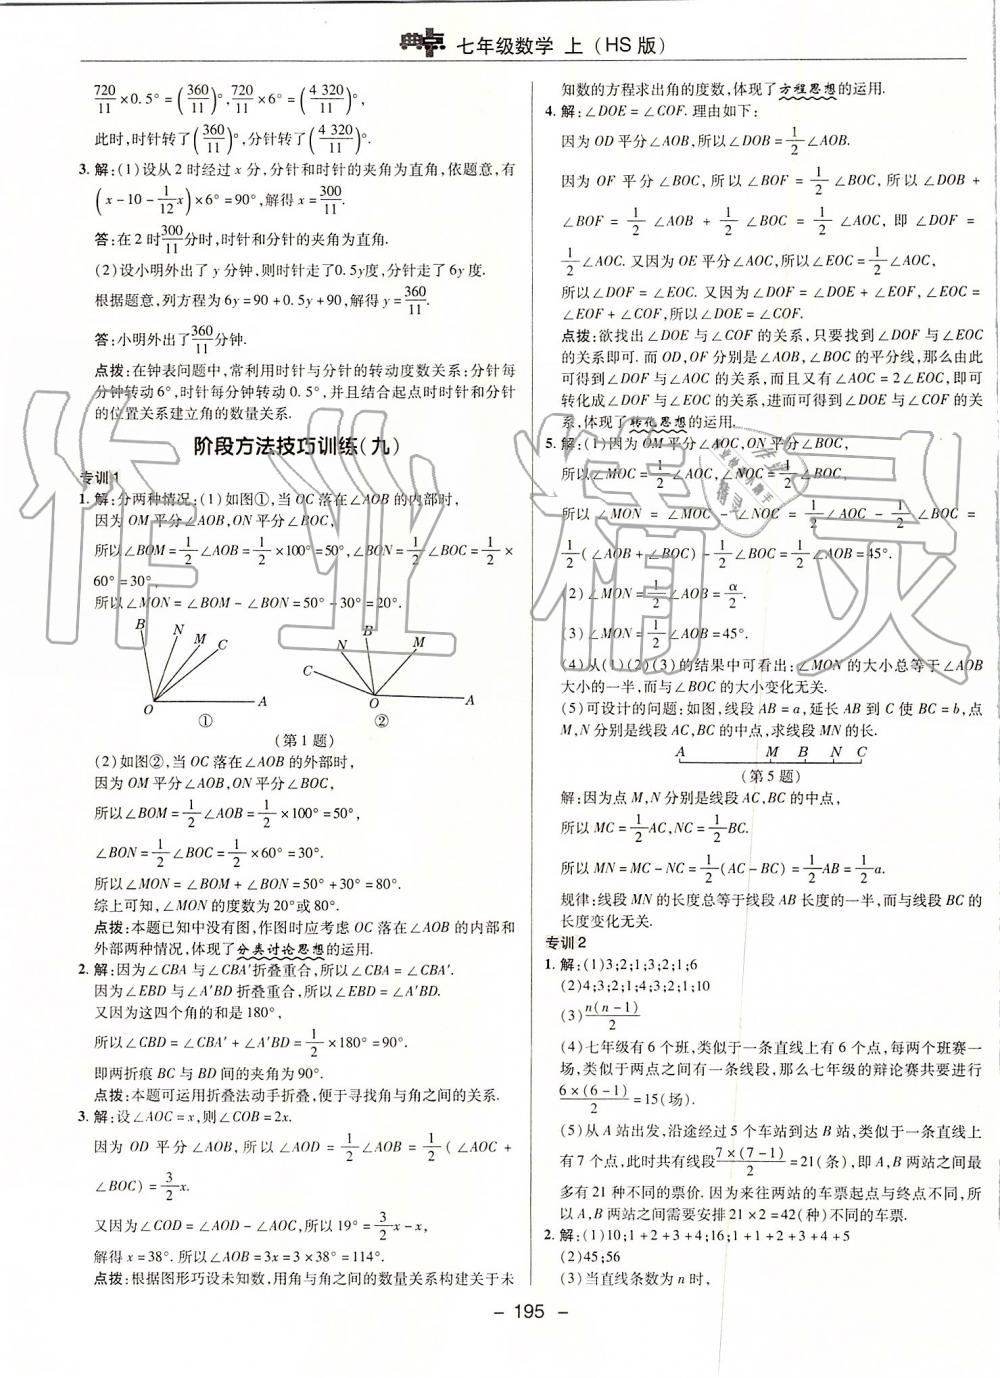 典点 七年级数学 上(HS版)
720/11×0.5°=(360/11)°,720/11×6°=(4 320/11)°,
此时,时针转了(360/11)°,分针转了(4 320/11)°.
3. 解:(1)设从2时经过x分,分针和时针的夹角为直角,依题意,有
(x-10-1/12x)×6°=90°,解得x=300/11.
答:在2时300/11分时,时针和分针的夹角为直角.
(2)设小明外出了y分钟,则时针走了0.5y度,分针走了6y度.
根据题意,列方程为6y=90+0.5y+90,解得y=360/11.
答:小明外出了360/11分钟.
点拨:在钟表问题中,常利用时针与分针的转动度数关系:分针每
分钟转动6°,时针每分钟转动0.5°,并且结合起点时时针和分针
的位置关系建立角的数量关系.
阶段方法技巧训练(九)
专训1
1. 解:分两种情况:(1)如图①,当OC落在∠AOB的内部时,
因为OM平分∠AOB,ON平分∠BOC,
所以∠BOM=1/2∠AOB=1/2×100°=50°,∠BON=1/2∠BOC=1/2×
60°=30°,
所以∠MON=∠BOM-∠BON=50°-30°=20°.
B N M C O A ①
C N B M O A ②
(第1题)
(2)如图②,当OC落在∠AOB的外部时,
因为OM平分∠AOB,ON平分∠BOC,
所以∠BOM=1/2∠AOB=1/2×100°=50°,
∠BON=1/2∠BOC=1/2×60°=30°.
所以∠MON=∠BOM+∠BON=50°+30°=80°.
综上可知,∠MON的度数为20°或80°.
点拨:本题已知中没有图,作图时应考虑OC落在∠AOB的内部和
外部两种情况,体现了分类讨论思想的运用.
2. 解:因为∠CBA与∠CBA′折叠重合,所以∠CBA=∠CBA′.
因为∠EBD与∠A′BD折叠重合,所以∠EBD=∠A′BD.
又因为这四个角的和是180°,
所以∠CBD=∠CBA′+∠A′BD=1/2×180°=90°.
即两折痕BC与BD间的夹角为90°.
点拨:本题可运用折叠法动手折叠,便于寻找角与角之间的关系.
3. 解:设∠AOC=x,则∠COB=2x.
因为OD平分∠AOB,所以∠AOD=1/2∠AOB=1/2(∠AOC+
∠BOC)=3/2x.
又因为∠COD=∠AOD-∠AOC,所以19°=3/2x-x,
解得x=38°.所以∠AOB=3x=3×38°=114°.
点拨:根据图形巧设未知数,用角与角之间的数量关系构建关于未
知数的方程求出角的度数,体现了方程思想的运用.
4. 解:∠DOE=∠COF.理由如下:
因为OD平分∠AOB,所以∠DOB=1/2∠AOB.
因为OF平分∠BOC,所以∠BOF=1/2∠BOC,所以∠DOB+
∠BOF=1/2∠AOB+1/2∠BOC=1/2∠AOC,即∠DOF=
1/2∠AOC.又因为OE平分∠AOC,所以∠EOC=1/2∠AOC,
所以∠DOF=∠EOC.又因为∠DOF=∠DOE+∠EOF,∠EOC=
∠EOF+∠COF,所以∠DOE=∠COF.
点拨:欲找出∠DOE与∠COF的关系,只要找到∠DOF与∠EOC
的关系即可.而OD,OF分别是∠AOB,∠BOC的平分线,那么由此
可得到∠DOF与∠AOC的关系,而且又有∠AOC=2∠EOC,即可
转化成∠DOF与∠EOC的关系,进而可得到∠DOE与∠COF的关
系,体现了转化思想的运用.
5. 解:(1)因为OM平分∠AOC,ON平分∠BOC,
所以∠MOC=1/2∠AOC,∠NOC=1/2∠BOC,
所以∠MON=∠MOC-∠NOC=1/2∠AOC-1/2∠BOC=
1/2(∠AOB+∠BOC)-1/2∠BOC=1/2∠AOB=45°.
(2)∠MON=1/2∠AOB=α/2.
(3)∠MON=1/2∠AOB=45°.
(4)从(1)(2)(3)的结果中可看出:∠MON的大小总等于∠AOB
大小的一半,而与∠BOC的大小变化无关.
(5)可设计的问题:如图,线段AB=a,延长AB到C使BC=b,点
M,N分别是线段AC,BC的中点,求线段MN的长.
A M B N C
(第5题)
解:因为点M,N分别是线段AC,BC的中点,
所以MC=1/2AC,NC=1/2BC.
所以MN=MC-NC=1/2(AC-BC)=1/2AB=1/2a.
规律:线段MN的长度总等于线段AB长度的一半,而与线段BC的
长度变化无关.
专训2
1. 解:(1)3;2;1;3;2;1;6
(2)4;3;2;1;4;3;2;1;10
(3)n(n-1)/2
(4)七年级有6个班,类似于一条直线上有6个点,每两个班赛一
场,类似于两点之间有一条线段,那么七年级的辩论赛共要进行
6×(6-1)/2=15(场).
(5)从A站出发,沿途经过5个车站到达B站,类似于一条直线上
有7个点,此时共有线段7×(7-1)/2=21(条),即A,B两站之间最
多有21种不同的票价.因为来往两站的车票起点与终点不同,所
以A,B两站之间需要安排21×2=42(种)不同的车票.
2. 解:(1)10;1+2+3+4;16;1+1+2+3+4+5
(2)45;56
(3)当直线条数为n时,
- 195 -
作业精灵